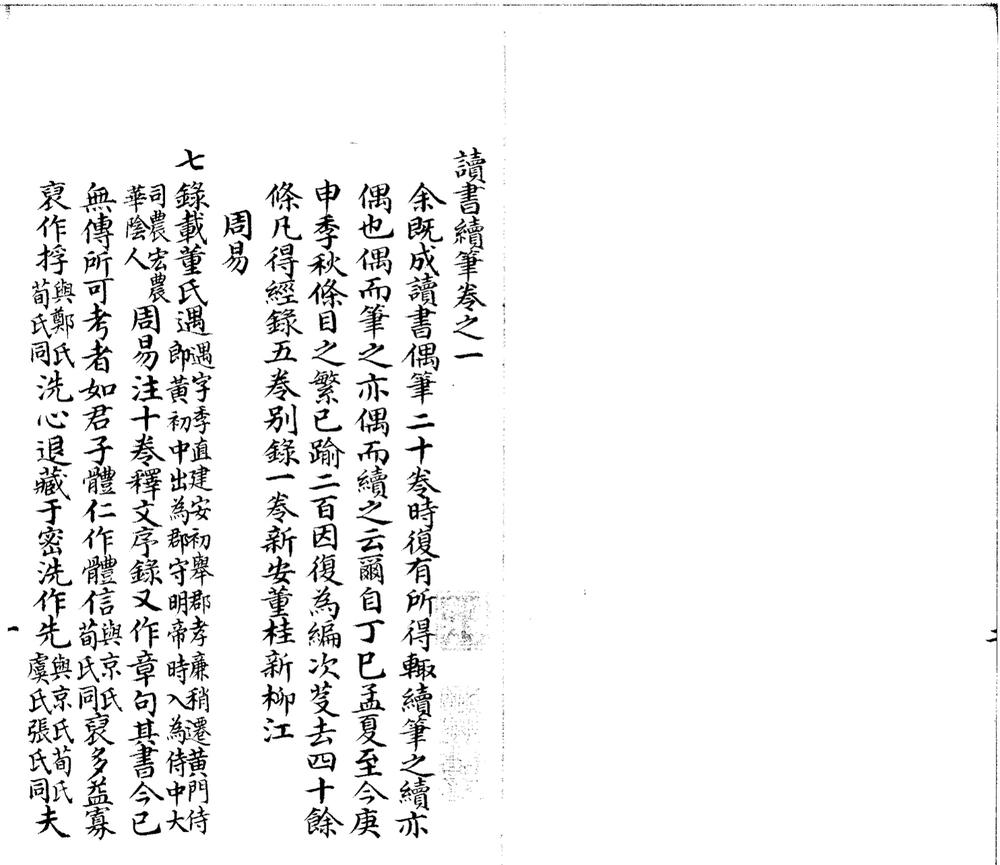 讀書續筆卷之一
余既成讀書偶筆二十卷時復有所得輒續筆之續亦
偶也偶而筆之亦偶而續之云爾自丁巳孟夏至今庚
申季秋條目之繁已踰二百因復為編次芟去四十餘
條凡得經錄五卷别錄一卷新安董桂新柳江
周易
七錄載董氏遇遇字季直建安初舉郡孝廉稍遷黃門侍
即黃初中出為郡守明帝時入為侍中大
司農宏農
華陰人周易注十卷釋文序錄又作章句其書今已
無傳所可考者如君子體仁作體信與京氏
荀氏同裒多益寡
裒作捊與鄭氏
荀氏同洗心退藏于密洗作先與京氏荀氏
虞氏張氏同夫
一